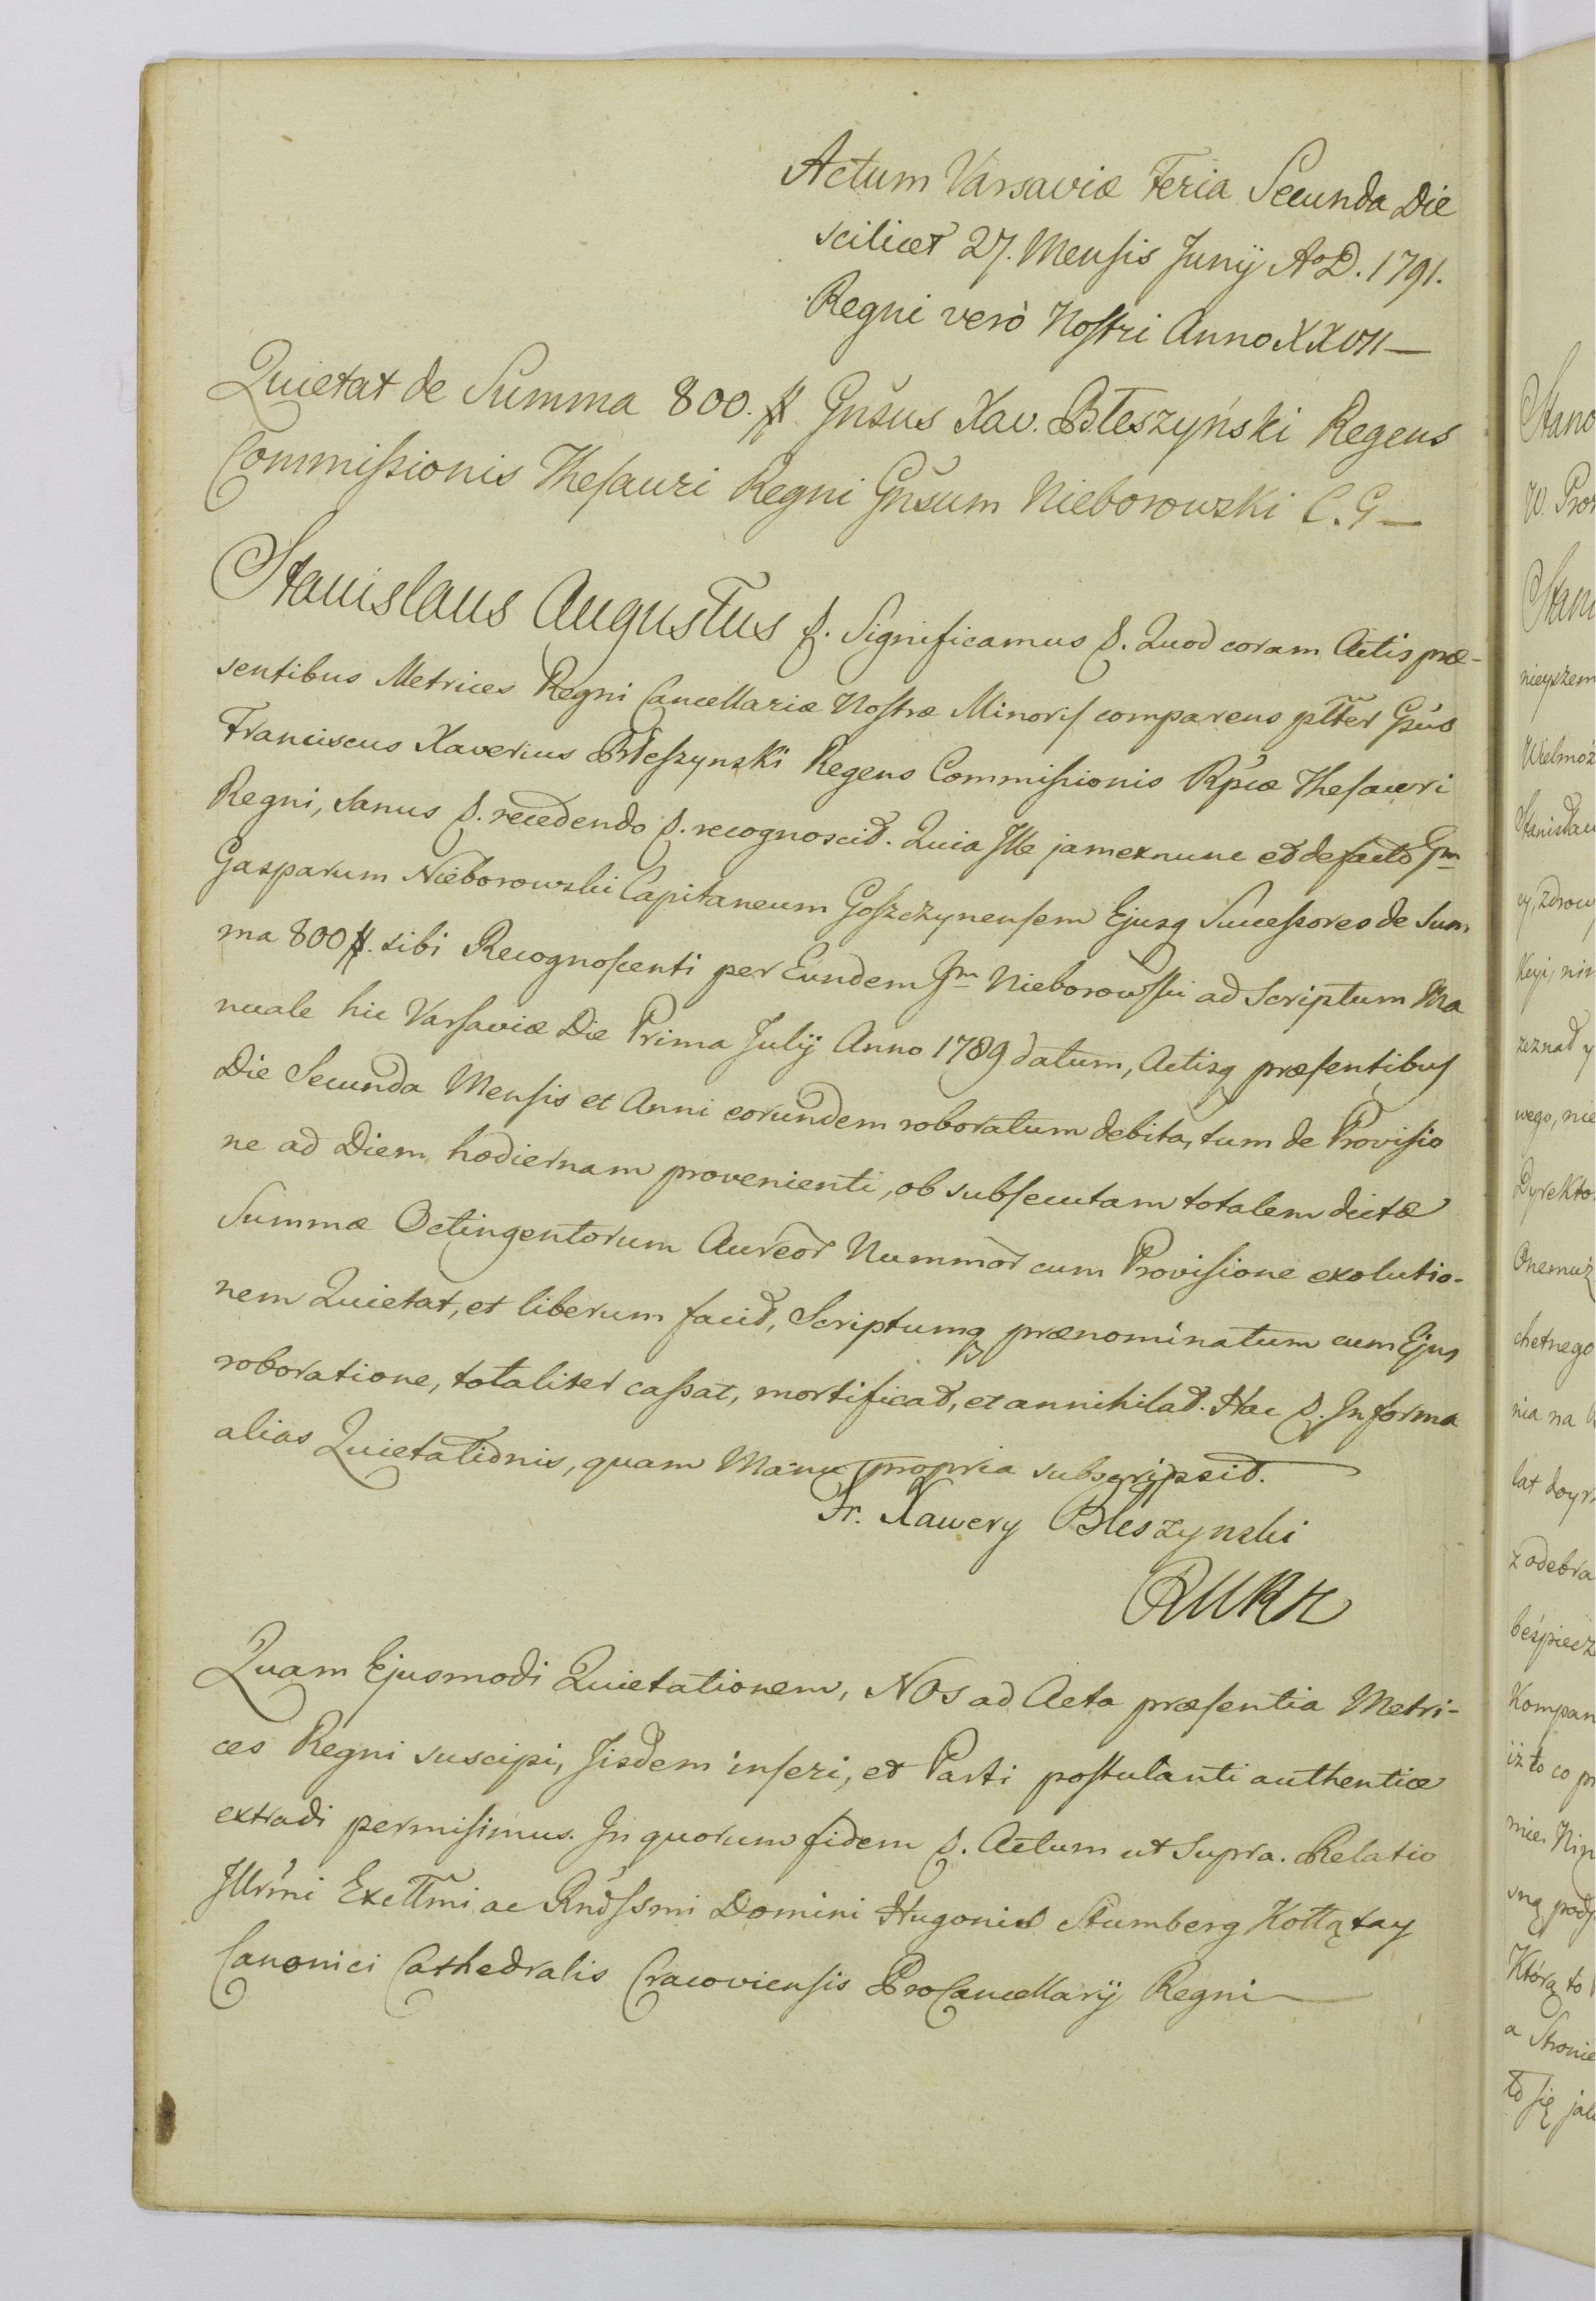 Actum Varsaviæ Feria Secunda Die
scilicet 27. Mensis Junij A°D. 1791.
Regni verò Nostri Anno XXVII—
Quietat de Summa 800. # Gnsus Xav. Błeszyński Regens
Commissionis Thesauri Regni Gnsum Nieborowski C. G—
Stanislaus Augustus &. Significamus &. Quod coram Actis præ-
sentibus Metrices Regni Cancellariæ Nostræ Minoris comparens pltter Gsus
Franciscus Xaverius Błeszynski Regens Commissionis Rpcæ Thesauri
Regni, sanus &. recedendo &. recognoscit. Quia Ille jam exnunc et defacto Gm
Gasparum Nieborowski Capitaneum Goszczynensem Ejusq Successores de Sum,
ma 800 #. sibi Recognoscenti per Eundem Gm Nieborowski ad Scriptum Ma
nuale hic Varsaviæ Die Prima Julij Anno 1789 datum, Actisq præsentibus
Die Secunda Mensis et Anni eorundem roboratum debita, tum de Provisio
ne ad Diem hodiernam provenienti, ob subsecutam totalem dictæ
Summæ Octingentorum Aureor Nummor cum Provisione exolutio-
nem Quietat, et liberum facit, Scriptumq prænominatum cum Ejus
roboratione, totaliter cassat, mortificat, et annihilat. Hac &. In forma
alias Quietationis, quam Manu propria subscripsit.
Fr. Xawery Bleszynski
Quam Ejusmodi Quietationem, NOS ad Acta præsentia Metri-
ces Regni suscipi, Jisdem inseri, et Parti postulanti authentice
extradi permisimus. In quorum fidem &. Actum ut Supra. Relatio
Illrmi Exclltmi ac Rndssmi Domini Hugonis Stumberg Kołłątay
Canonici Cathedralis Cracoviensis ProCancellarij Regni—